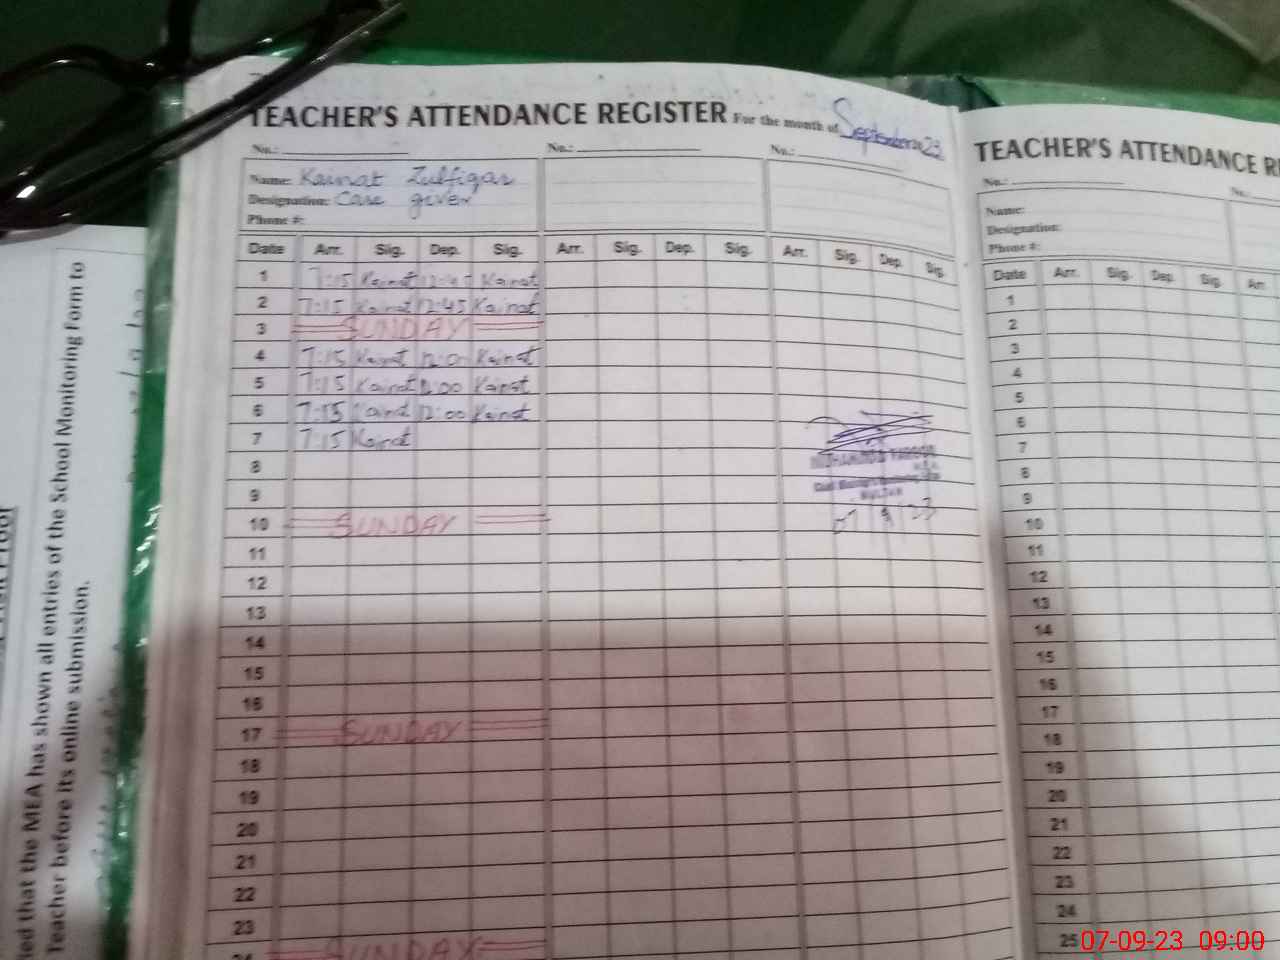 TEACHER'S ATTENDANCE REGISTER For the month of September 23
No.: No.: No.:
Name: Kainat Zulfiqar
Designation: Care giver
Phone #:
Date Arr. Sig. Dep. Sig. Arr. Sig. Dep. Sig. Arr. Sig. Dep. Sig.
1 7:15 Kainat 12:45 Kainat
2 7:15 Kainat 12:45 Kainat
3 SUNDAY
4 7:15 Kainat 12:00 Kainat
5 7:15 Kainat 12:00 Kainat
6 7:15 Kainat 12:00 Kainat
7 7:15 Kainat
8
9
10 SUNDAY
11
12
13
14
15
16
17 SUNDAY
18
19
20
21
22
23
24 SUNDAY
MULTAN
07/9/23
TEACHER'S ATTENDANCE RE
No.: No.:
Name:
Designation:
Phone #:
Date Arr. Sig. Dep. Sig. Arr
1
2
3
4
5
6
7
8
9
10
11
12
13
14
15
16
17
18
19
20
21
22
23
24
25
ied that the MEA has shown all entries of the School Monitoring Form to
Teacher before its online submission.
07-09-23 09:00